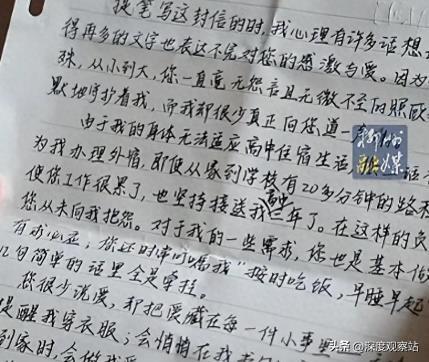 提笔写这封信的时,我心理有许多话想
得再多的文字也表达不完对您的感激与爱。因为
殊,从小到大,你一直毫无怨言且无微不至的照顾
默地守护着我,而我却很少真正向您道一
由于我的身体无法适应高中住宿生活
为我办理外宿,即使从家到学校有20多分钟的路程
使您工作很累了,也坚持接送我高中三年了。在这样的负
您从未向我抱怨。对于我的一些需求,您也是基本做
有求必应;你还时常叮嘱我“按时吃饭,早睡早起
几句简单的话里全是牵挂。
您很少说爱,却把爱藏在每一件小事
提醒我穿衣服;会悄悄在我
到家时,会做我爱
融媒
头条 @深度观察站